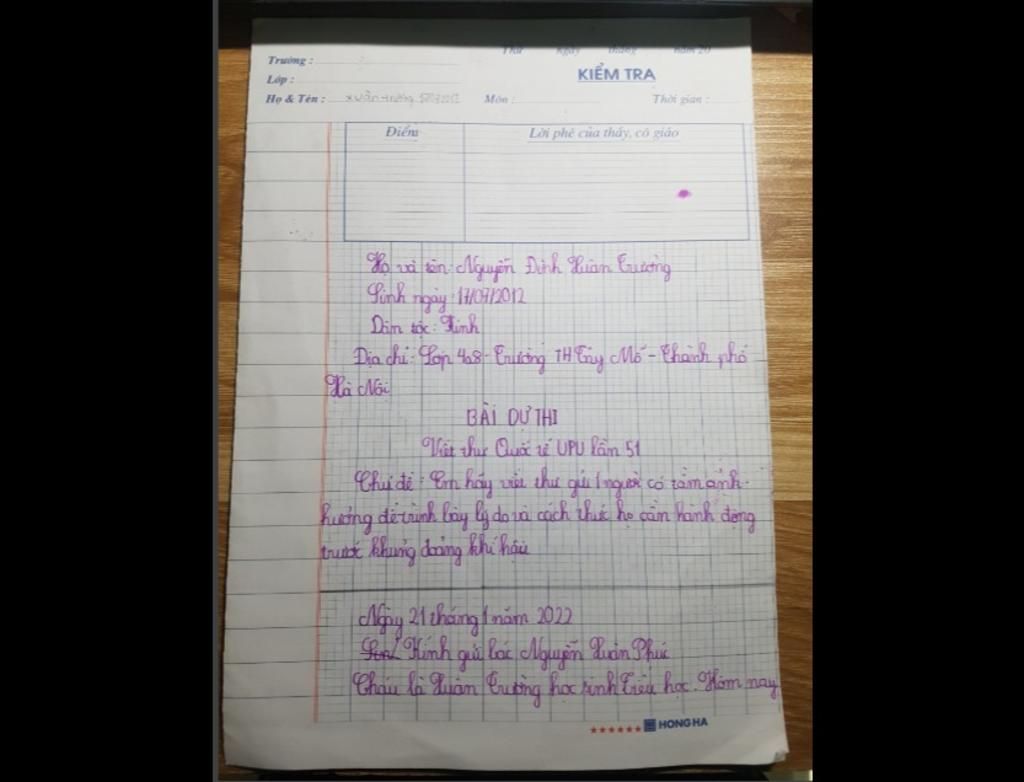 Thứ ngày tháng năm 20
Trường :
KIỂM TRA
Lớp :
Họ & Tên : xuân trường 17/07/2012 Môn : Thời gian :
Điểm Lời phê của thầy, cô giáo
Họ và tên: Nguyễn Đình Xuân Trường
Sinh ngày: 17/07/2012
Dân tộc: Kinh
Địa chỉ: Lớp 4a8 - Trường TH Tây Mỗ - Thành phố
Hà Nội
BÀI DỰ THI
Viết thư Quốc tế UPU lần 51
Chủ đề: Em hãy viết thư gửi 1 người có tầm ảnh
hưởng để trình bày lý do và cách thức họ cần hành động
trước khủng hoảng khí hậu
Ngày 21 tháng 1 năm 2022
Kính gửi bác Nguyễn Xuân Phúc
Cháu là Xuân Trường học sinh Tiểu học. Hôm nay
HONG HA